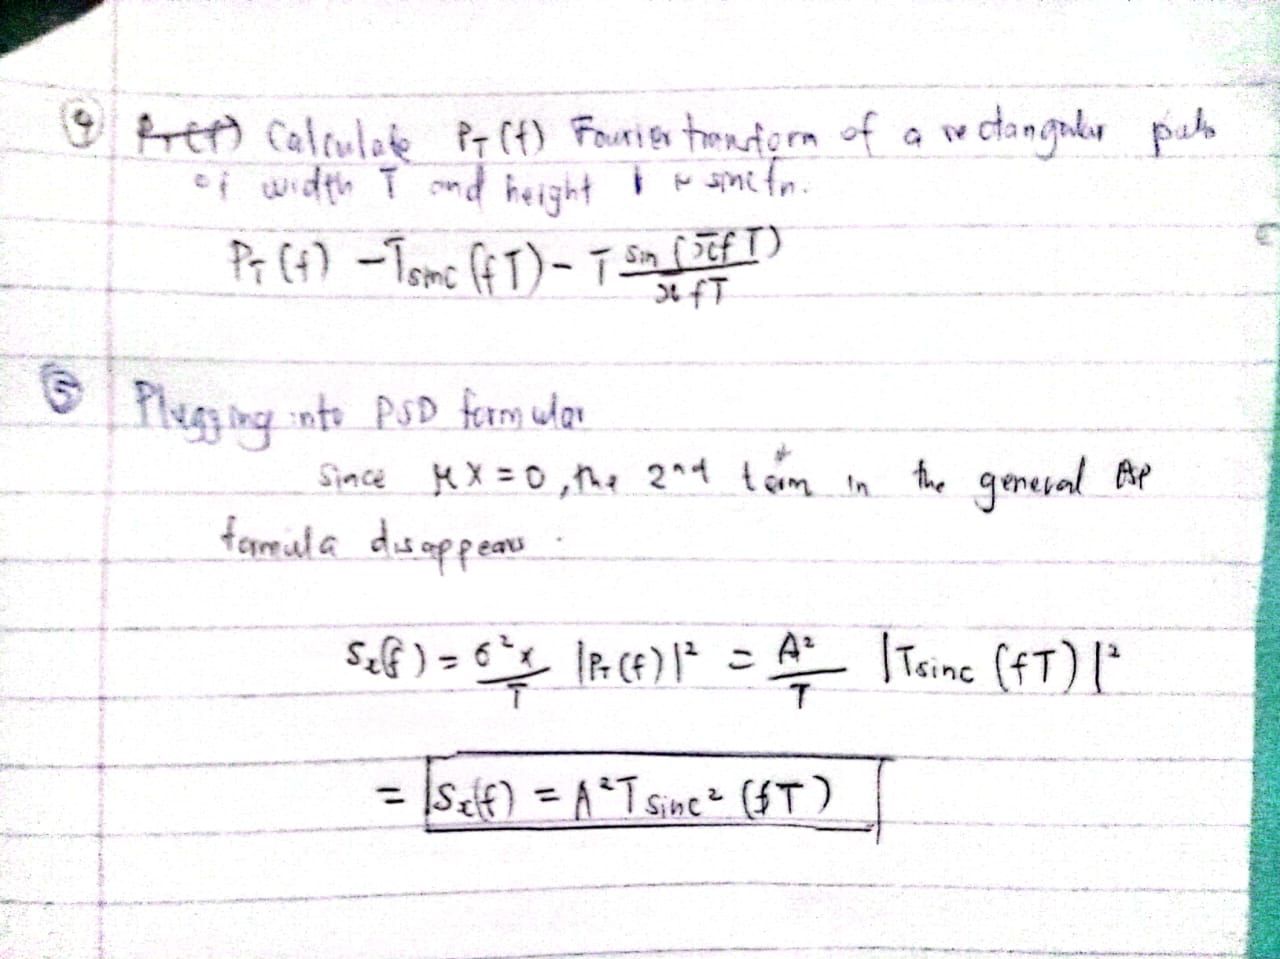 ④ P_T(f) Calculate P_T(f) Fourier transform of a rectangular
of width T and height 1 sinc fn.
P_T(f) - T sinc (fT) - T sin (πfT) / πfT
⑤ Plugging into PSD formular
Since μX = 0, the 2nd term in the general
formula disappears.
S_x(f) = σ²x / T |P_T(f)|² = A² / T |T sinc (fT)|²
= S_x(f) = A²T sinc² (fT)